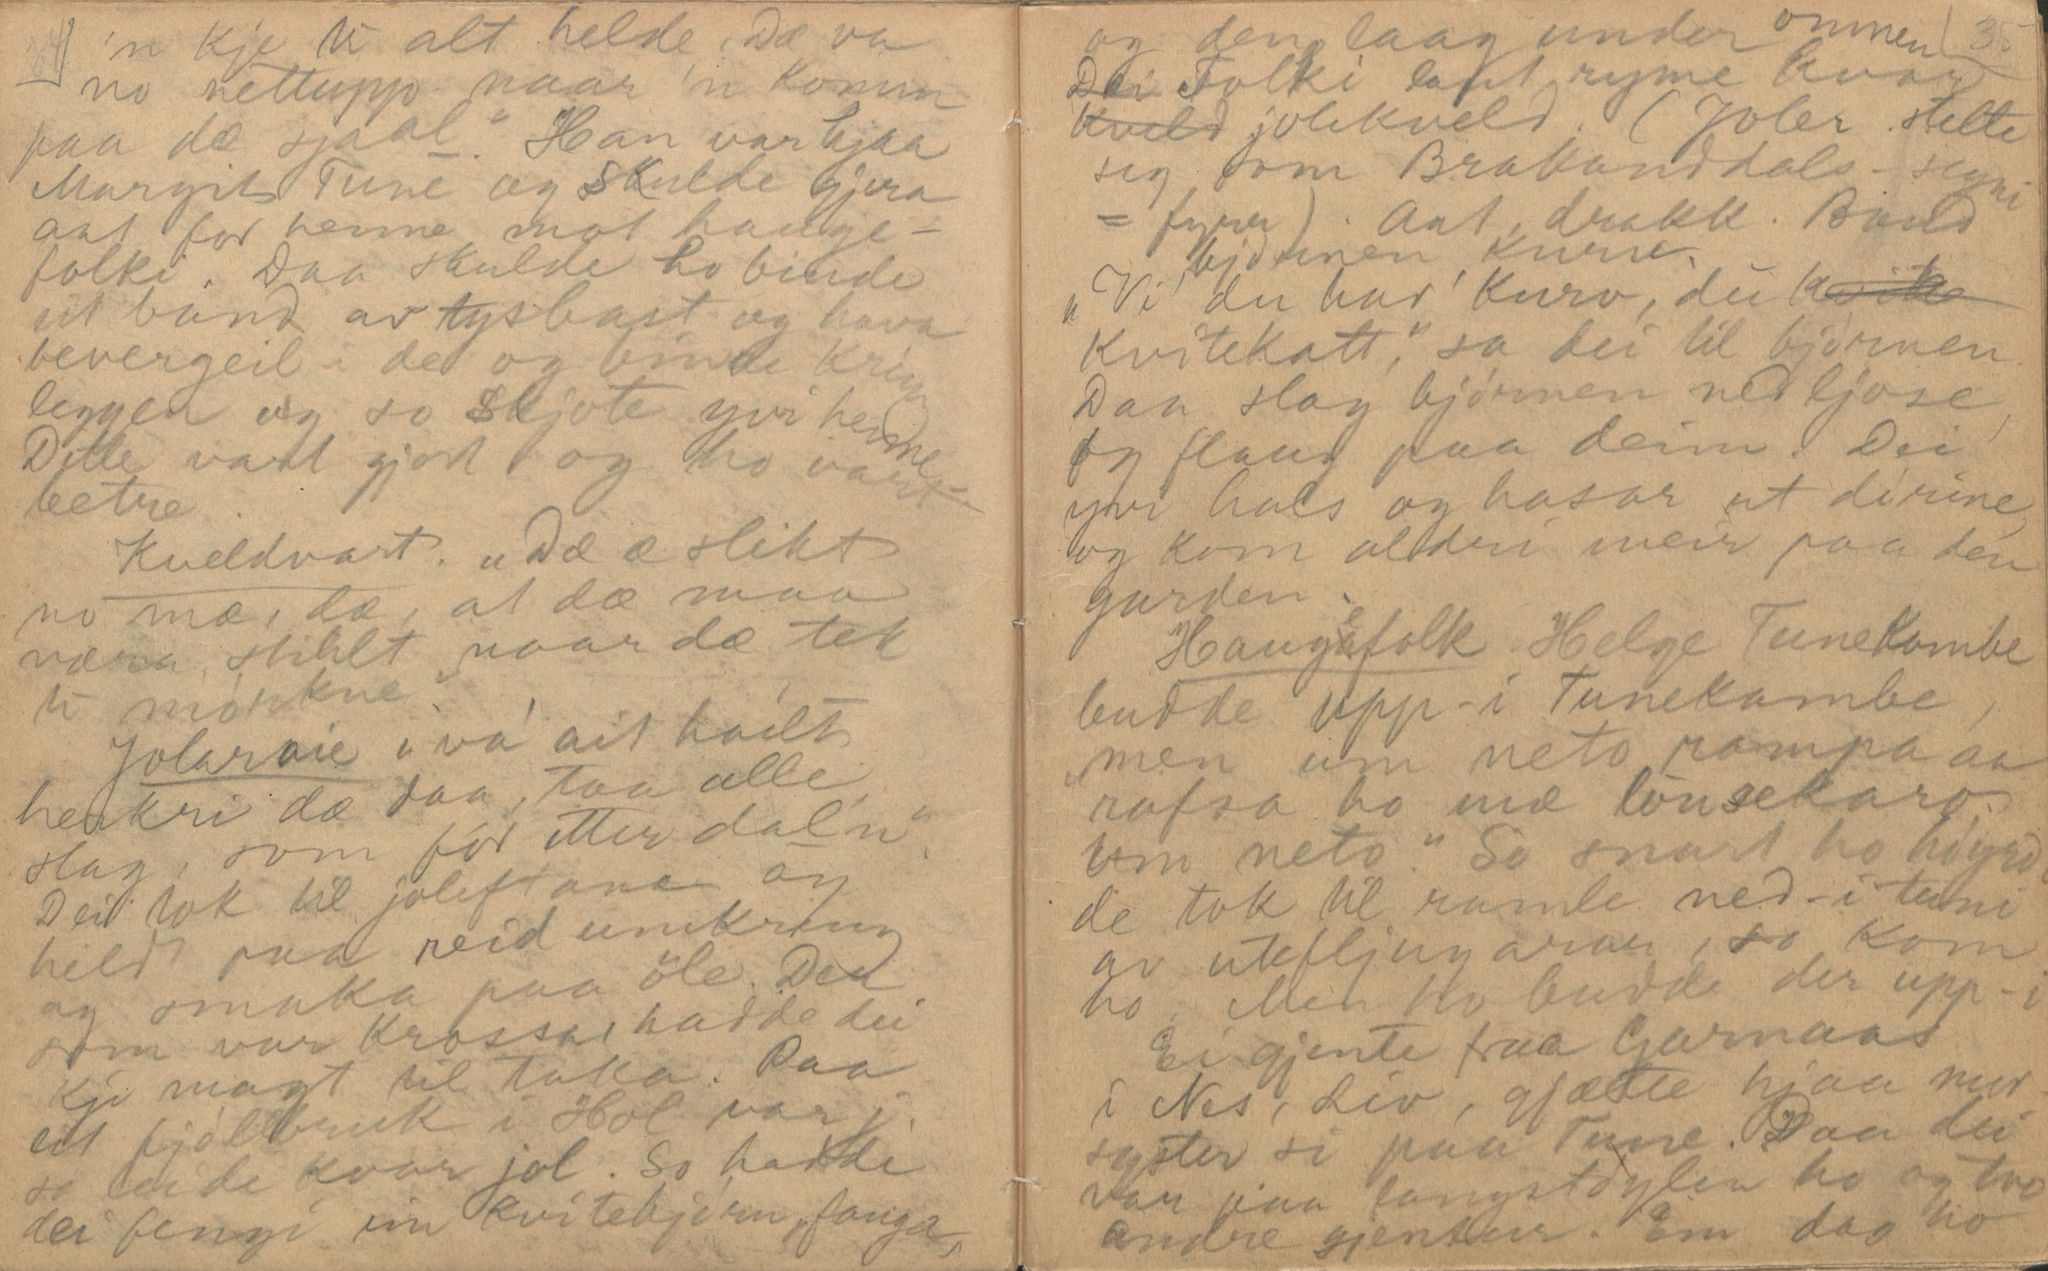 34
'n kje ti alt helde. Dæ va
no nettupp naar 'n komm
paa dæ sjaal." Han var hjaa
Margit Tune og skulde gjera
aat for henne mot hauge-
folki. Daa skulde ho binde
eit band av tysbast og hava
bevergeil i de og binde kring
leggen og so skjote yvi henne
Dette vart gjort og ho vart
betre.
Kveldvart. "Dæ æ slikt
no mæ, dæ, at dæ maa
væra stillt naar dæ tek
ti mórkne."
Jolaraie "va ait hailt
henkri dæ daa, taa alle
slag, som for etter dal'n".
Dei tok til joleftane og
held paa reid umkring
og smaka paa öle. Det
som var krossa, hadde dei
kje magt til taka. Paa
eit fjóllbruk i Hol var
so leide kvar jol. So hadde
dei fengi ein kvitebjórn, fanga,
35
og den laag under omnen
Dei Folki laut ryme kvar
kveld jolekveld. (Joler stelte
sig som Brabanddals-segni
= fyrer). Aat, drakk. Baud
bjórnen kurv.
"Vi' du ha' kurv, du kvite
kvitekatt," sa dei til bjórnen.
Daa slog bjórnen ned ljose,
og flaug paa deim. Dei
yvi hals og hasar ut dirine,
og kom aldri meir paa den
garden.
Haugefolk Helge Tunekambe
budde upp-i Tunekambe,
"men um neto rampa aa
rafsa ho mæ lonsekaro
um neto." So snart ho høyrd
de tok til ramle ned-i tuni
av utefljugarar, so kom
ho. Men ho budde der upp-i
Ei gjente fraa Garnaas
i Nes, Liv, gjætte hjaa mor-
syster si paa Tune. Daa dei
var paa langstóylen ho og tvo
andre gjentur. Ein dag ho